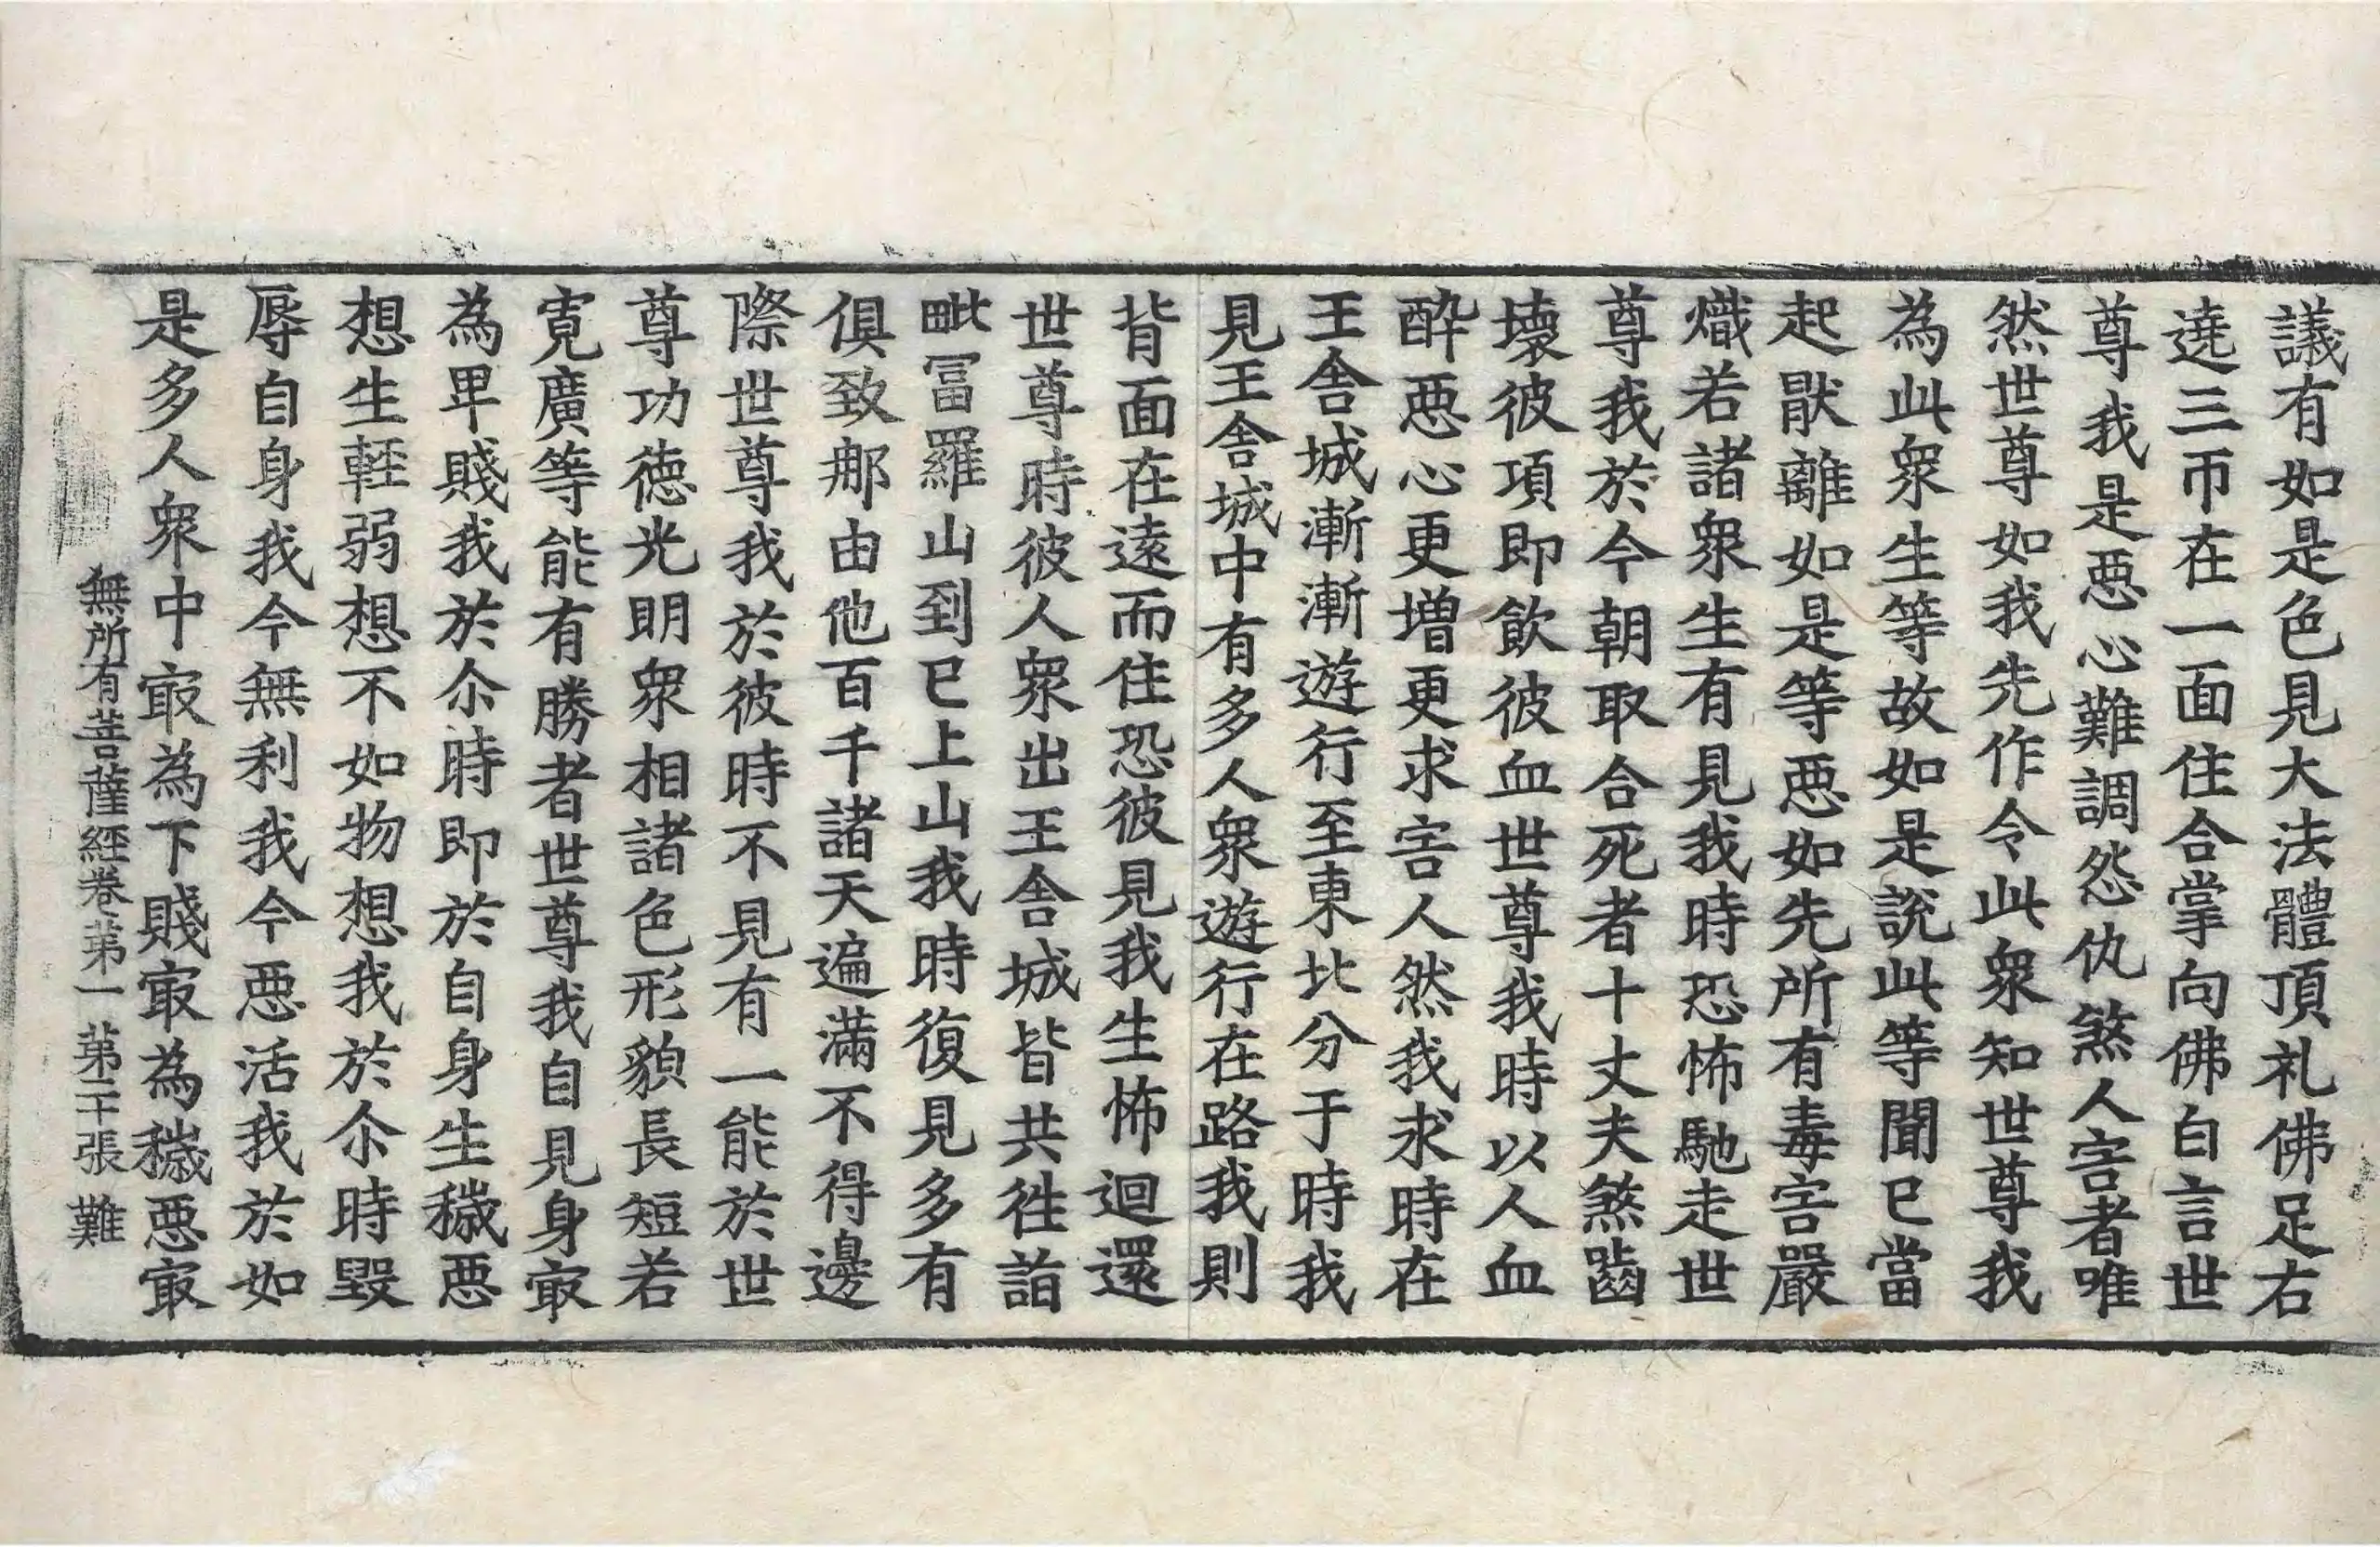 議有如是色見大法體頂礼佛足右
遶三帀在一面住合掌向佛白言世
尊我是惡心難調怨仇煞人害者唯
然世尊如我先作令此衆知世尊我
為此衆生等故如是說此等聞已當
起猒離如是等惡如先所有毒害嚴
熾若諸衆生有見我時恐怖馳走世
尊我於今朝取合死者十丈夫煞齧
壞彼項即飲彼血世尊我時以人血
醉惡心更增更求害人然我求時在
王舍城漸漸遊行至東北分于時我
見王舍城中有多人衆遊行在路我則
背面在遠而住恐彼見我生怖迴還
世尊時彼人衆出王舍城皆共往詣
毗冨羅山到已上山我時復見多有
俱致那由他百千諸天遍滿不得邊
際世尊我於彼時不見有一能於世
尊功德光明衆相諸色形貌長短若
寬廣等能有勝者世尊我自見身㝡
為卑賤我於尒時即於自身生穢惡
想生輕弱想不如物想我於尒時毀
辱自身我今無利我今惡活我於如
是多人衆中㝡為下賤㝡為穢惡㝡
無所有菩薩經卷第一 第二十張 難